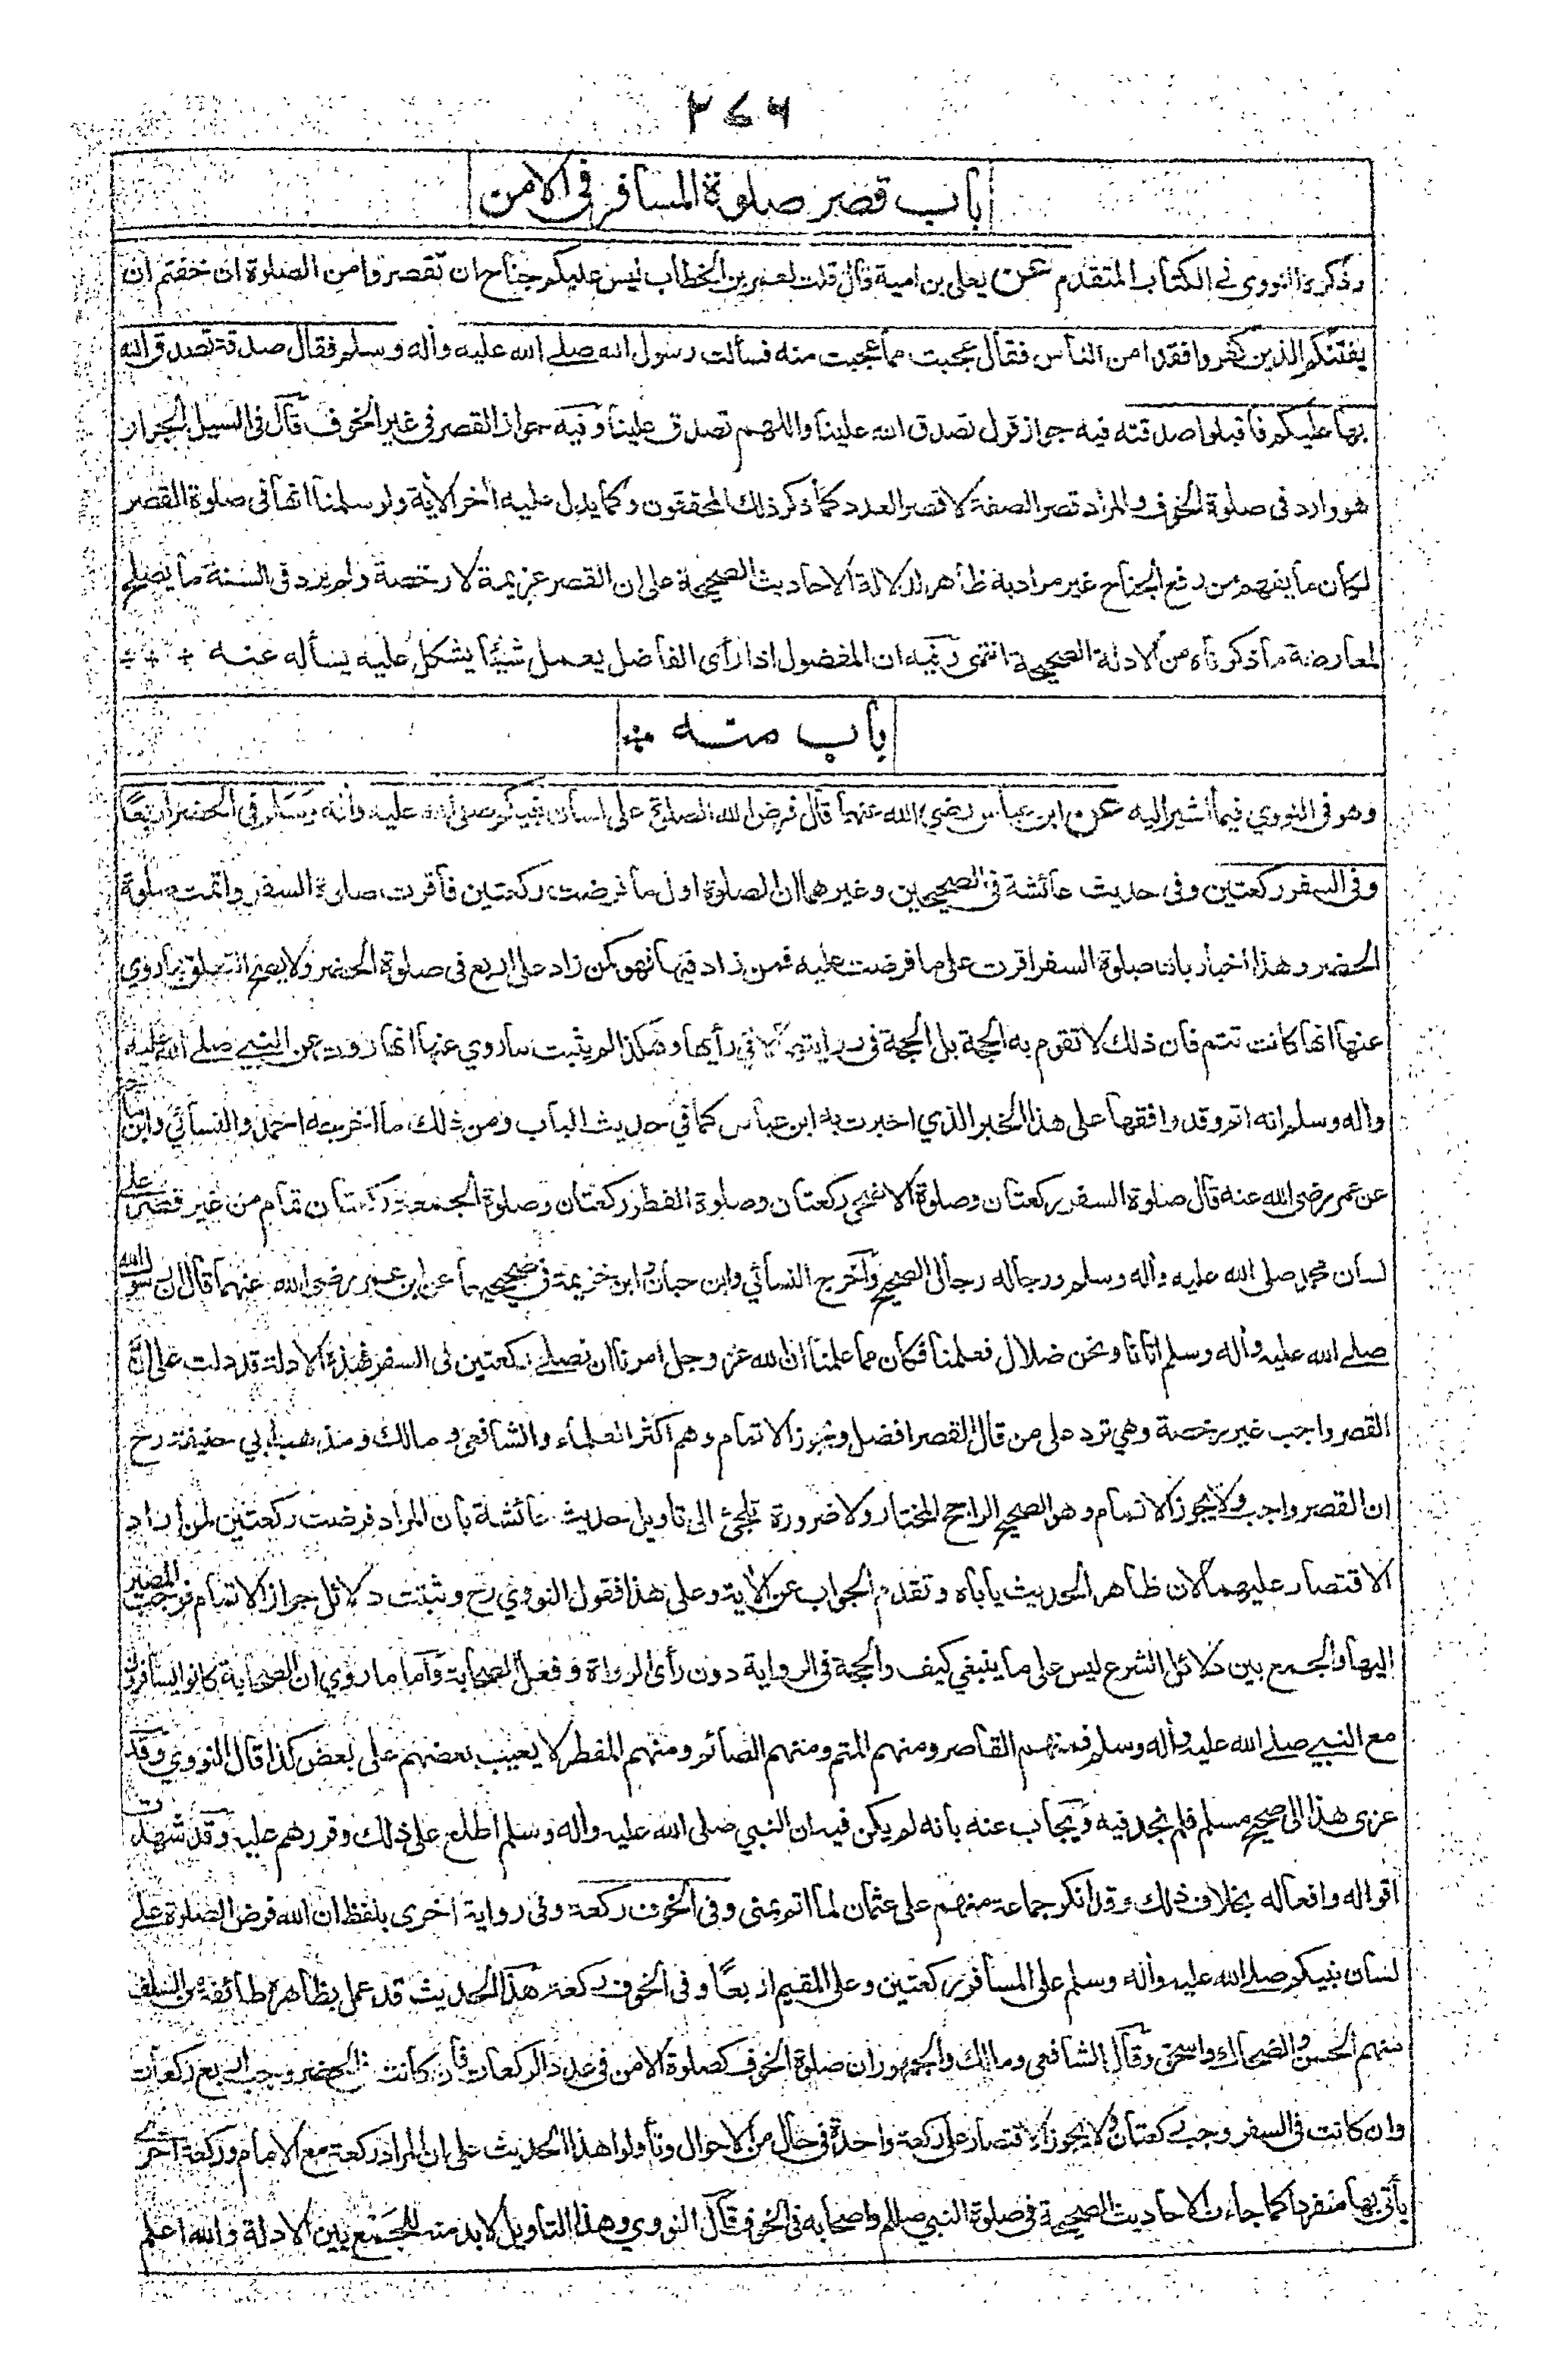 ٢٧٦
باب قصر صلوة المسافر في الامن
وذكره النووي في الكتاب المتقدم عن يعلى بن امية قال قلت لعمر بن الخطاب ليس عليكم جناح ان تقصروا من الصلوة ان خفتم ان
يفتنكم الذين كفروا فقد امن الناس فقال عجبت مما عجبت منه فسألت رسول الله صلے الله عليه وأله وسلم فقال صدقة تصدق الله
بها عليكم فأقبلوا صدقته فيه جواز قول تصدق الله علينا واللهم تصدق علينا وفيه جواز القصر في غير الخوف قال في السيل الجرار
هو وارد في صلوة الخوف والمراد قصر الصفة لا قصر العدد كما ذكر ذلك المحققون وكما يدل عليه أخر الأية ولو سلمنا انها في صلوة القصر
لكان ما يفهم من رفع الجناح غير مراد به ظاهر الدلالة الاحاديث الصحيحة على ان القصر عزيمة لا رخصة ولم يرد في السنة ما يصلح
لمعارضة ما ذكرناه من الادلة الصحيحة انتهى وفيه ان المفضول اذا رأى الفاضل يعمل شيئا يشكل عليه يسأله عنه
باب منه
وهو في النووي فيما أشير اليه عن ابن عباس رضي الله عنهما قال فرض الله الصلوة على لسان نبيكم صلى الله عليه وأله وسلم في الحضر اربعًا
وفي السفر ركعتين وفي حديث عائشة في الصحيحين وغيرهما ان الصلوة اول ما فرضت ركعتين فأقرت صلوة السفر واتمت صلوة
الحضر وهذا اخبار بان صلوة السفر اقرت على ما فرضت عليه فمن زاد فيها فهو كمن زاد على اربع في صلوة الحضر ولا يصح التعلق بما روي
عنها انها كانت تتم فان ذلك لا تقوم به الحجة بل الحجة في روايتها لا في رأيها وهكذا لم يثبت ما روي عنها انها روت عن النبي صلے الله عليه
وأله وسلم انه اتم وقد وافقها على هذا الخبر الذي اخبرت به ابن عباس كما في حديث الباب ومن ذلك ما اخرجه احمد والنسائي وابن ماجه
عن عمر رضي الله عنه قال صلوة السفر ركعتان وصلوة الاضحى ركعتان وصلوة الفطر ركعتان وصلوة الجمعة ركعتان تمام من غير قصر على
لسان محمد صلى الله عليه وأله وسلم ورجاله رجال الصحيح وأخرج النسائي وابن حبان وابن خزيمة في صحيحيهما عن ابن عمر رضي الله عنهما قال ان رسول الله
صلے الله عليه وأله وسلم اتانا ونحن ضلال فعلمنا فكان مما علمنا ان الله عز وجل امرنا ان نصلے ركعتين في السفر فهذه الادلة قد دلت على ان
القصر واجب غير رخصة وهي ترد على من قال القصر افضل ويجوز الاتمام وهم اكثر العلماء والشافعي و مالك ومذهب ابي حنيفة رح
ان القصر واجب ولا يجوز الاتمام وهو الصحيح الراجح المختار ولا ضرورة تلجئ الى تاويل حديث عائشة بان المراد فرضت ركعتين لمن أراد
الاقتصار عليهما لان ظاهر الحديث يأباه وتقدم الجواب عن الأية وعلى هذا فقول النووي رح وثبتت دلائل جواز الاتمام فوجب المصير
اليها والجمع بين دلائل الشرع ليس على ما ينبغي كيف والحجة في الرواية دون رأى الرواة وفعل الصحابة وأما ما روي ان الصحابة كانوا يسافرون
مع النبي صلے الله عليه وأله وسلم فمنهم القاصر ومنهم المتم ومنهم الصائم ومنهم المفطر لا يعيب بعضهم على بعض كذا قال النووي وقد
عزى هذا الى صحيح مسلم فلم نجد فيه ويجاب عنه بأنه لم يكن فيه ان النبي صلى الله عليه وأله وسلم اطلع على ذلك وقررهم عليه وقد شهدت
اقواله وافعاله بخلاف ذلك وقد انكر جماعة منهم على عثمان لما اتم بمنى وفي الخوف ركعة وفي رواية اخرى بلفظ ان الله فرض الصلوة علے
لسان نبيكم صلے الله عليه وأله وسلم على المسافر ركعتين وعلى المقيم اربعًا وفي الخوف ركعة هذا الحديث قد عمل بظاهره طائفة من السلف
منهم الحسن والضحاك واسحق وقال الشافعي ومالك والجمهور ان صلوة الخوف كصلوة الامن في عدد الركعات فان كانت في الحضر وجب اربع ركعات
وان كانت في السفر وجب ركعتان ولا يجوز الاقتصار على ركعة واحدة في حال من الاحوال وتأولوا هذا الحديث على ان المراد ركعة مع الامام وركعة اخرى
يأتي بها منفردا كما جاءت الاحاديث الصحيحة في صلوة النبي صللم واصحابه في الخوف قال النووي وهذا التاويل لابد منه للجمع بين الادلة والله اعلم